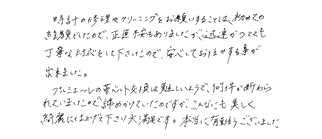 時計の修理やクリーニングをお願いすることは、初めての
経験でしたので、正直不安もありましたが、迅速かつとても
丁寧な対応をして下さったので、安心してお任せする事が
出来ました。
ブルミエールの革ベルト交換は難しいようで、何件か断わら
れていましたので諦めかけていたのですが、こんなにも美しく
綺麗に仕上げて下さり大満足です。本当に有難うございました